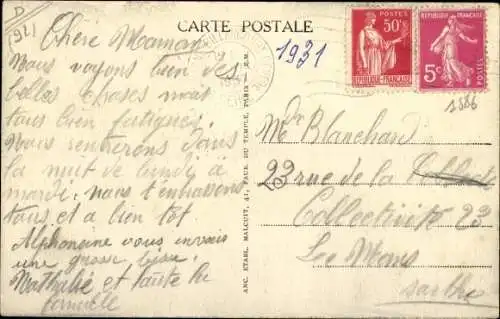 D
1921
CARTE POSTALE
1931
Chère Maman
Nous voyons bien des
belles choses mais
tous bien fatigués.
Nous rentrerons dans
la nuit de lundi à
mardi. nous t'embrassons
tous et a bien tot
Alphonsine vous envois
une grosse bise.
Nathalie et toute la
famille
ANC. ETABL. MALCUIT, 41, FAUB. DU TEMPLE, PARIS
POSTES
50c
REPUBLIQUE FRANÇAISE
REPUBLIQUE FRANÇAISE
5c
POSTES
1586
Me Blanchard
23 rue de la
Collectivité 23
Le Mans
Sarthe